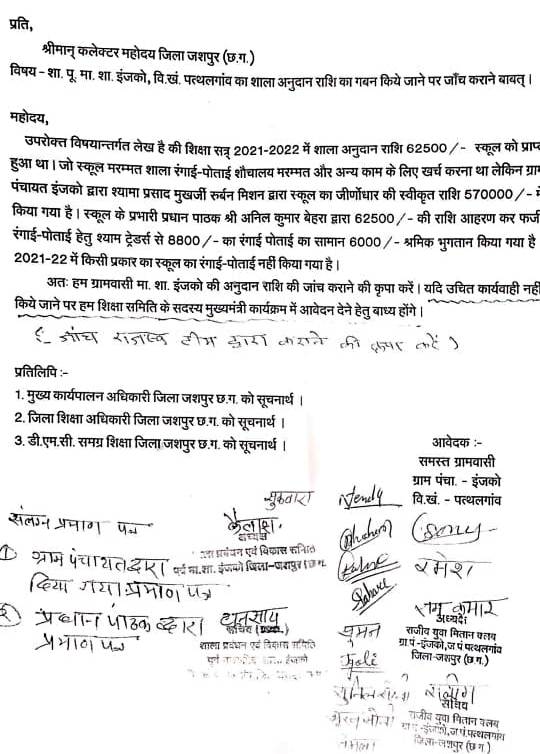 प्रति,
श्रीमान् कलेक्टर महोदय जिला जशपुर (छ.ग.)
विषय - शा. पू. मा. शा. इंजको, वि.खं. पत्थलगांव का शाला अनुदान राशि का गबन किये जाने पर जाँच कराने बाबत्।
महोदय,
उपरोक्त विषयान्तर्गत लेख है की शिक्षा सत्र 2021-2022 में शाला अनुदान राशि 62500/- स्कूल को प्राप्त
हुआ था। जो स्कूल मरम्मत शाला रंगाई-पोताई शौचालय मरम्मत और अन्य काम के लिए खर्च करना था लेकिन ग्रा
पंचायत इंजको द्वारा श्यामा प्रसाद मुखर्जी रुर्बन मिशन द्वारा स्कूल का जीर्णोधार की स्वीकृत राशि 570000/- में
किया गया है। स्कूल के प्रभारी प्रधान पाठक श्री अनिल कुमार बेहरा द्वारा 62500/- की राशि आहरण कर फर्जी
रंगाई-पोताई हेतु श्याम ट्रेडर्स से 8800/- का रंगाई पोताई का सामान 6000/- श्रमिक भुगतान किया गया है
2021-22 में किसी प्रकार का स्कूल का रंगाई-पोताई नहीं किया गया है।
अतः हम ग्रामवासी मा. शा. इंजको की अनुदान राशि की जांच कराने की कृपा करें। यदि उचित कार्यवाही नहीं
किये जाने पर हम शिक्षा समिति के सदस्य मुख्यमंत्री कार्यक्रम में आवेदन देने हेतु बाध्य होंगे।
जांच राजस्व टीम द्वारा कराने की कृपा करें)
प्रतिलिपि :-
1. मुख्य कार्यपालन अधिकारी जिला जशपुर छ.ग. को सूचनार्थ।
2. जिला शिक्षा अधिकारी जिला जशपुर छ.ग. को सूचनार्थ।
3. डी.एम.सी. समग्र शिक्षा जिला जशपुर छ.ग. को सूचनार्थ।
आवेदक :-
समस्त ग्रामवासी
ग्राम पंचा. - इंजको
वि.खं. - पत्थलगांव
संलग्न प्रमाण पत्र
① ग्राम पंचायत द्वारा
दिया गया प्रमाण पत्र
② प्रधान पाठक द्वारा
प्रमाण पत्र
कैलाश
अध्यक्ष
शाला प्रबंधन एवं विकास समिति
पूर्व मा.शा. इंजको जिला-जशपुर (छ.ग.
सचिव
शाला प्रबंधन एवं विकास समिति
सुकवारा
रमेश
राम कुमार
अध्यक्ष
राजीव युवा मितान क्लब
ग्रा.पं.-इंजको, ज.पं.पत्थलगांव
जिला-जशपुर (छ.ग.)
सुमन
सचिव
राजीव युवा मितान क्लब
-इंजको, ज.पं.पत्थलगांव
जिला-जशपुर (छ.ग.)